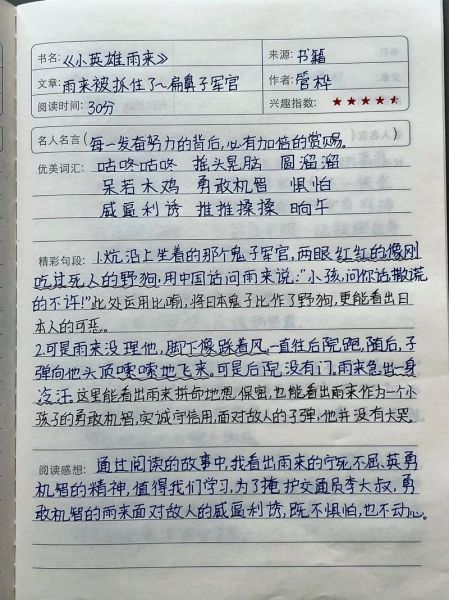 书名:《小英雄雨来》 来源:书籍
文章:雨来被抓住了~扁鼻子军官 作者:管桦
阅读时间:30分 兴趣指数:★★★★★
名人名言(每一发奋努力的背后,必有加倍的赏赐。
优美词汇: 咕咚咕咚 摇头晃脑 圆溜溜
呆若木鸡 勇敢机智 惧怕
威逼利诱 推推搡搡 晌午
精彩句段: 1.炕沿上坐着的那个鬼子军官,两眼红红的像刚
吃过死人的野狗,用中国话问雨来说:“小孩,问你话撒谎
的不许!”此处运用比喻,将日本鬼子比作了野狗,更能看出日
本人的可恶。
2.可是雨来没理他,脚下像踩着风一直往后院跑,随后,子
弹向他头顶嗖嗖地飞来。可是后院没有门,雨来急出一身
冷汗。这里能看出雨来拼命地想保密,也能看出雨来作为一个小
孩子的勇敢机智,实诚守信用,面对敌人的子弹,他并没有大哭。
阅读感想: 通过阅读的故事中,我看出雨来的宁死不屈、英勇
机智的精神,值得我们学习,为了掩护交通员李大叔,勇
敢机智的雨来面对敌人的威逼利诱,既不惧怕,也不动心。